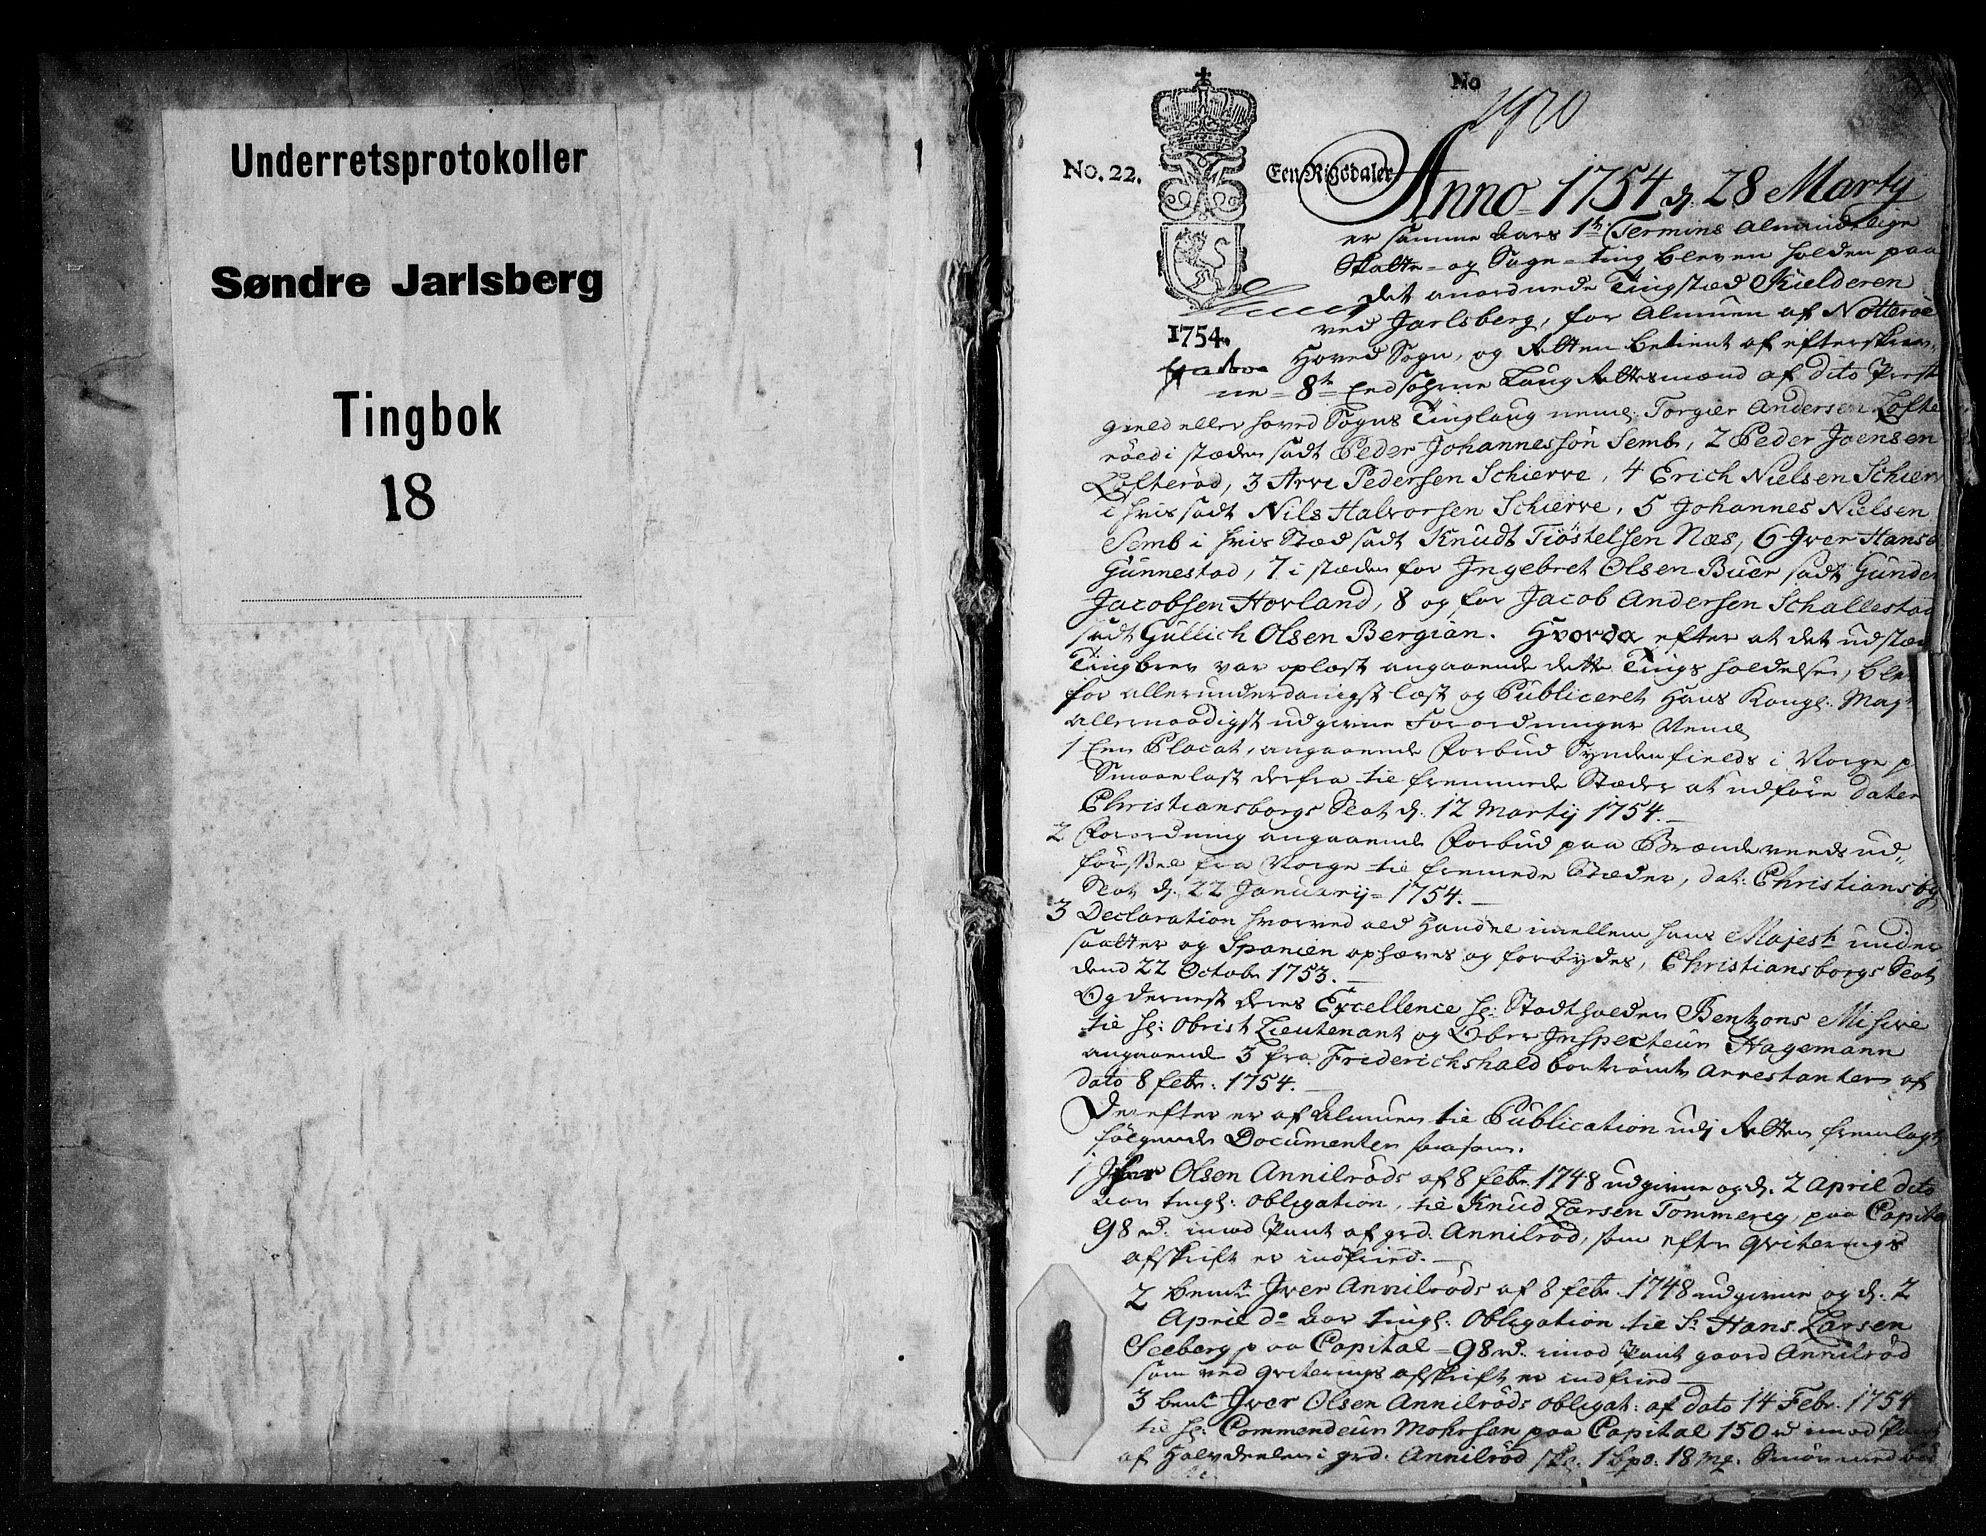 Underretsprotokoller
Søndre Jarlsberg
Tingbok
18
1
No
No. 22.
Een Rigsdaler
1754.
Anno 1754 d. 28 Martij
er samme Aars 1te Termins Almindelige
Skatte- og Sage-ting bleven holden paa
det anordnede Tingstæd Kielderen
ved Jarlsberg, for Almuen af Nøtterøe
Hoved Sogn, og Retten betient af efterskrev-
ne 8te Eedsorne Laug Rettesmænd af dito Prest
gield eller hoved Sogns Tinglaug neml. Torgier Andersen Løfte
røed i stæden sadt Peder Johannessøn Semb, 2 Peder Joensen
Løfterød, 3 Arve Pedersen Schierve, 4 Erich Nielsen Schierv
i hvis sadt Nils Halvorsen Schierve, 5 Johannes Nielsen
Semb i hvis Stæd sadt Knudt Tiøstelsen Næs, 6 Jver Hans
Gunnestad, 7 i stæden for Jngebret Olsen Buer sadt Gunder
Jacobsen Hovland, 8 og for Jacob Andersen Schallestad
sadt Gullich Olsen Bergian. Hvorda efter at det udstæd
Tingbrev var oplæst angaaende dette Tings holdelse, ble
for allerunderdanigst læst og Publiceret Hans Kongl. Mayts
allernaadigst udgivne Forordninger Neml
1 Een Placat, angaaende Forbud Syndenfields i Norge p
Smaae last derfra til fremmede Stæder at udføre dater
Christiansborgs Slot d. 12 Martij 1754.
2 Forordning angaaende Forbud paa Brændeveeds ud-
førssel fra Norge til fremmede Stæder, dat: Christiansbg
Slot d. 22 Januarij 1754.
3 Declaration hvorved ald Handel imellem hans Majests under
saatter og Spanien ophæves og forbydes, Christiansborgs Slot
dend 22 Octobr 1753.
Og dernest deres Excellence hr. Stadtholder Bentzons Missive
til hr. Obrist Lieutenant og Ober Jnspecteur Hagemann
angaaende 3 fra Friderichshald bortrømte Arrestanter af
dato 8 febr. 1754.
Derefter er af Almuen til Publication udj Retten fremlagt
følgende Documenter saasom.
1 Jver Olsen Annilrøds af 8 febr. 1748 udgivne og d. 2 April dito
Aar tingl. Obligation, til Knud Larsen Tommereg, paa Capital
98 rd. imod Pant af grd. Annilrød, som efter qviterings
afskrift er indfried.
2 bemte Jver Annilrøds af 8 febr 1748 udgivne og d. 2
April do Aar tingl. Obligation til Sr. Hans Larsen
Seeberg paa Capital 98 rd. imod Pant gaard Annilrød
som ved qviterings afskrift er indfried
3 bemte Jver Olsen Annilrøds obligat: af dato 14 Febr. 1754
til hr. Commendeur Mohrsen paa Capital 150 rd imod Pant
af Halvdeelen i grd. Annilrød skl. 1 bpd. 18 mk. Smør med bø